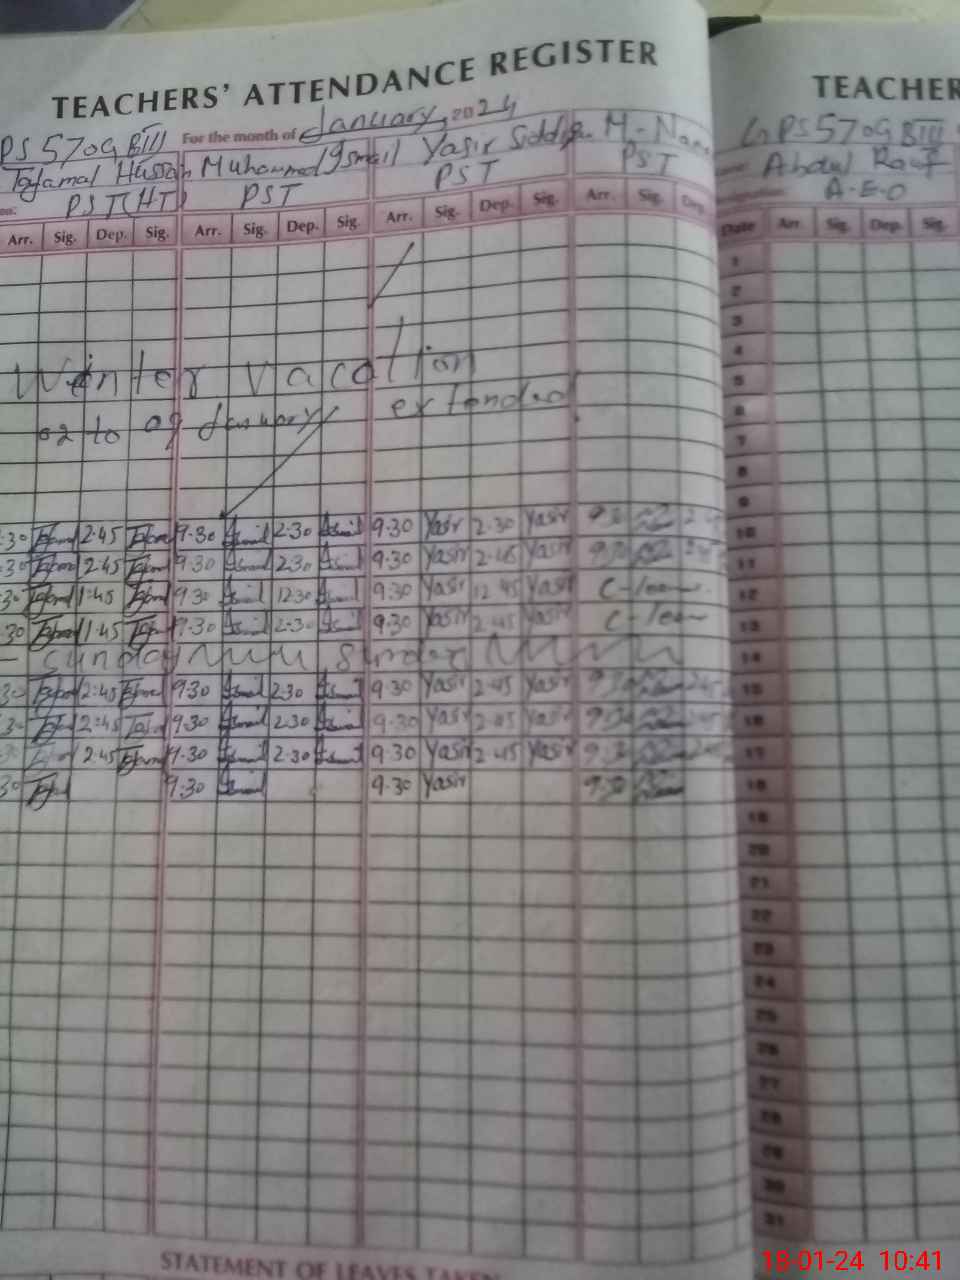 TEACHERS' ATTENDANCE REGISTER
PS 570GBIII For the month of January, 2024
Tajamal Hussain Muhammad Ismail Yasir Siddiq M.
PST(HT) PST PST PST
Arr. Sig. Dep. Sig. Arr. Sig. Dep. Sig. Arr. Sig. Dep. Sig. Arr. Sig. Dep.
Winter Vacation
02 to 09 January extended
2:45 9:30 Ismail 2:30 Ismail 9:30 Yasir 2:30 Yasir 9:30
2:45 9:30 Ismail 2:30 Ismail 9:30 Yasir 2:45 Yasir 9:30
1:45 9:30 Ismail 12:30 Ismail 9:30 Yasir 12:45 Yasir C-leave
1:45 9:30 Ismail 2:30 Ismail 9:30 Yasir 2:45 Yasir C-leave
Sunday Sunday
2:45 9:30 Ismail 2:30 Ismail 9:30 Yasir 2:45 Yasir 9:30
2:45 9:30 Ismail 2:30 Ismail 9:30 Yasir 2:45 Yasir 9:30
2:45 9:30 Ismail 2:30 Ismail 9:30 Yasir 2:45 Yasir 9:30
9:30 Ismail 9:30 Yasir 9:30
STATEMENT OF LEAVES TAKEN
TEACHER
GPS 570GBIII
Abdul Rauf
A.E.O
Date Arr. Sig. Dep. Sig.
1
2
3
4
5
6
7
8
9
10
11
12
13
14
15
16
17
18
19
20
21
22
23
24
25
26
27
28
29
30
31
18-01-24 10:41